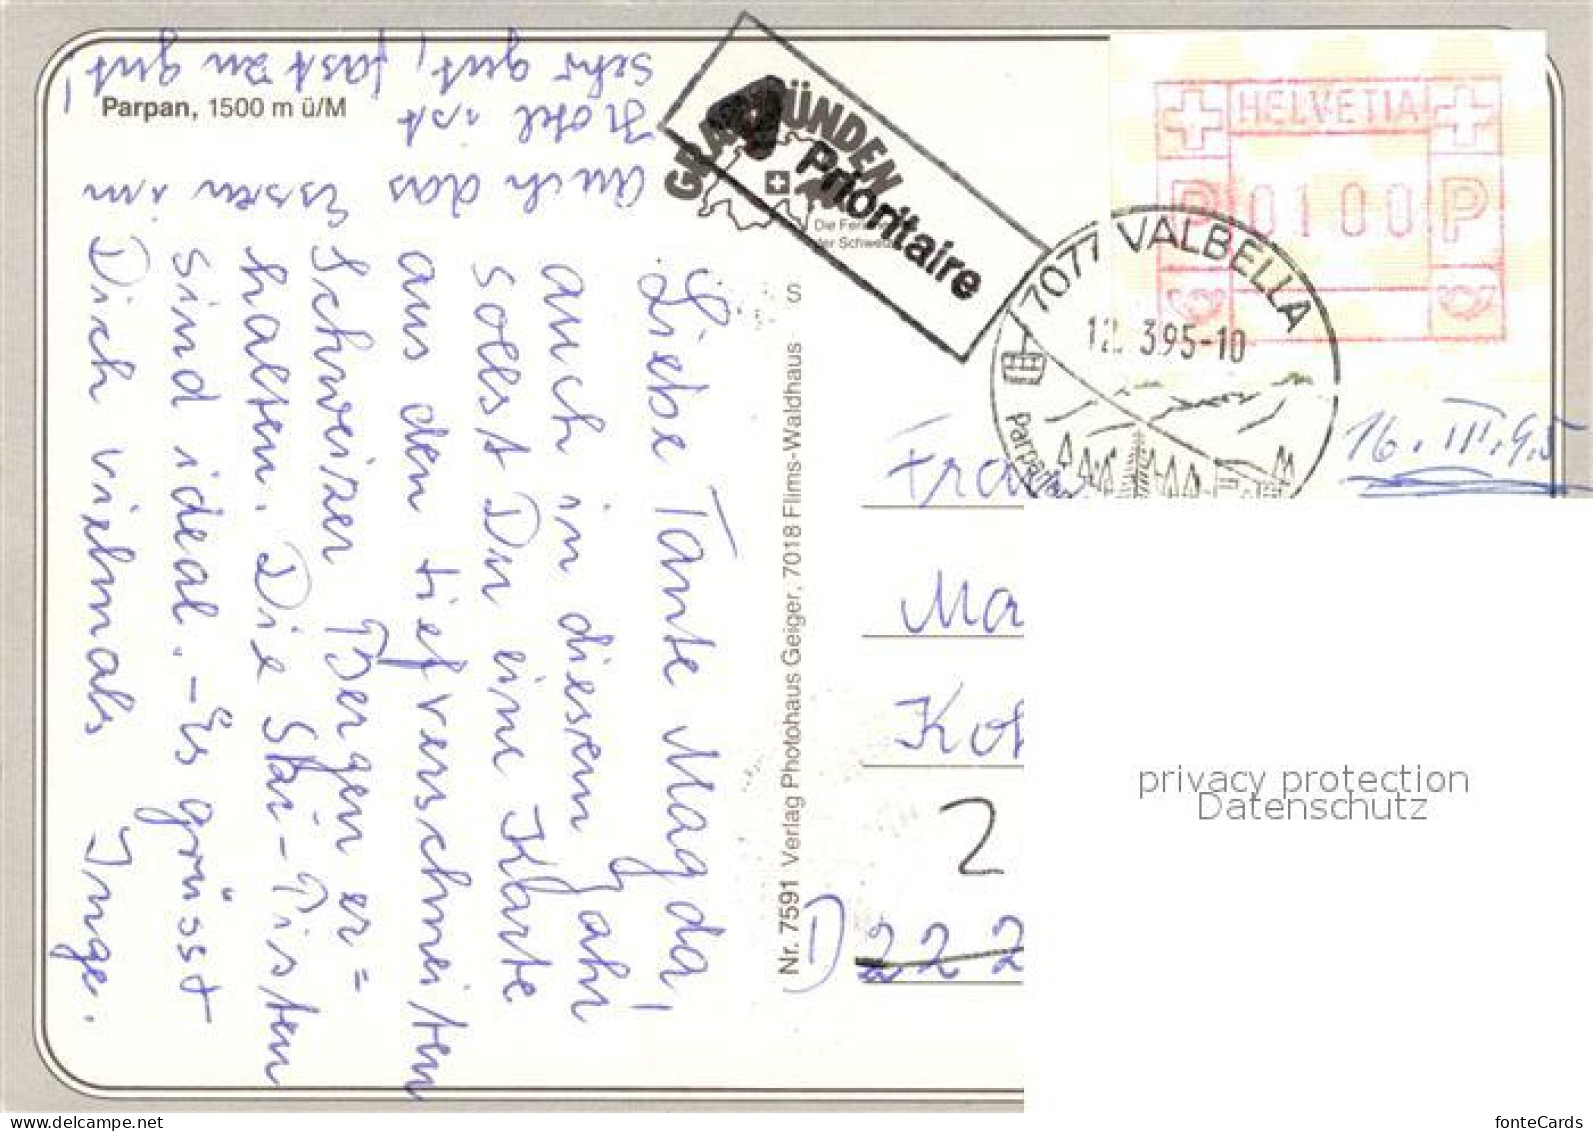 Parpan, 1500 m ü/M
Liebe Tante Magda,
auch in diesem Jahr
sollst Du eine Karte
aus den tief verschneiten
Schweizer Bergen er=
halten. Die Ski-Pisten
sind ideal. - Es grüsst
Dich vielmals Inge.
Essen im
auch das
Hotel ist
sehr gut, fast zu gut!
Nr. 7591 Verlag Photohaus Geiger, 7018 Flims-Waldhaus
S
GRAUBÜNDEN
Die Ferie
der Schweiz
A
Prioritaire
HELVETIA
P 0100 P
7077 VALBELLA
12. 3.95-10
Parpan
16. III. 95
Frau
Ma
Kot
2
D 222
privacy protection
Datenschutz
www.delcampe.net
fonteCards